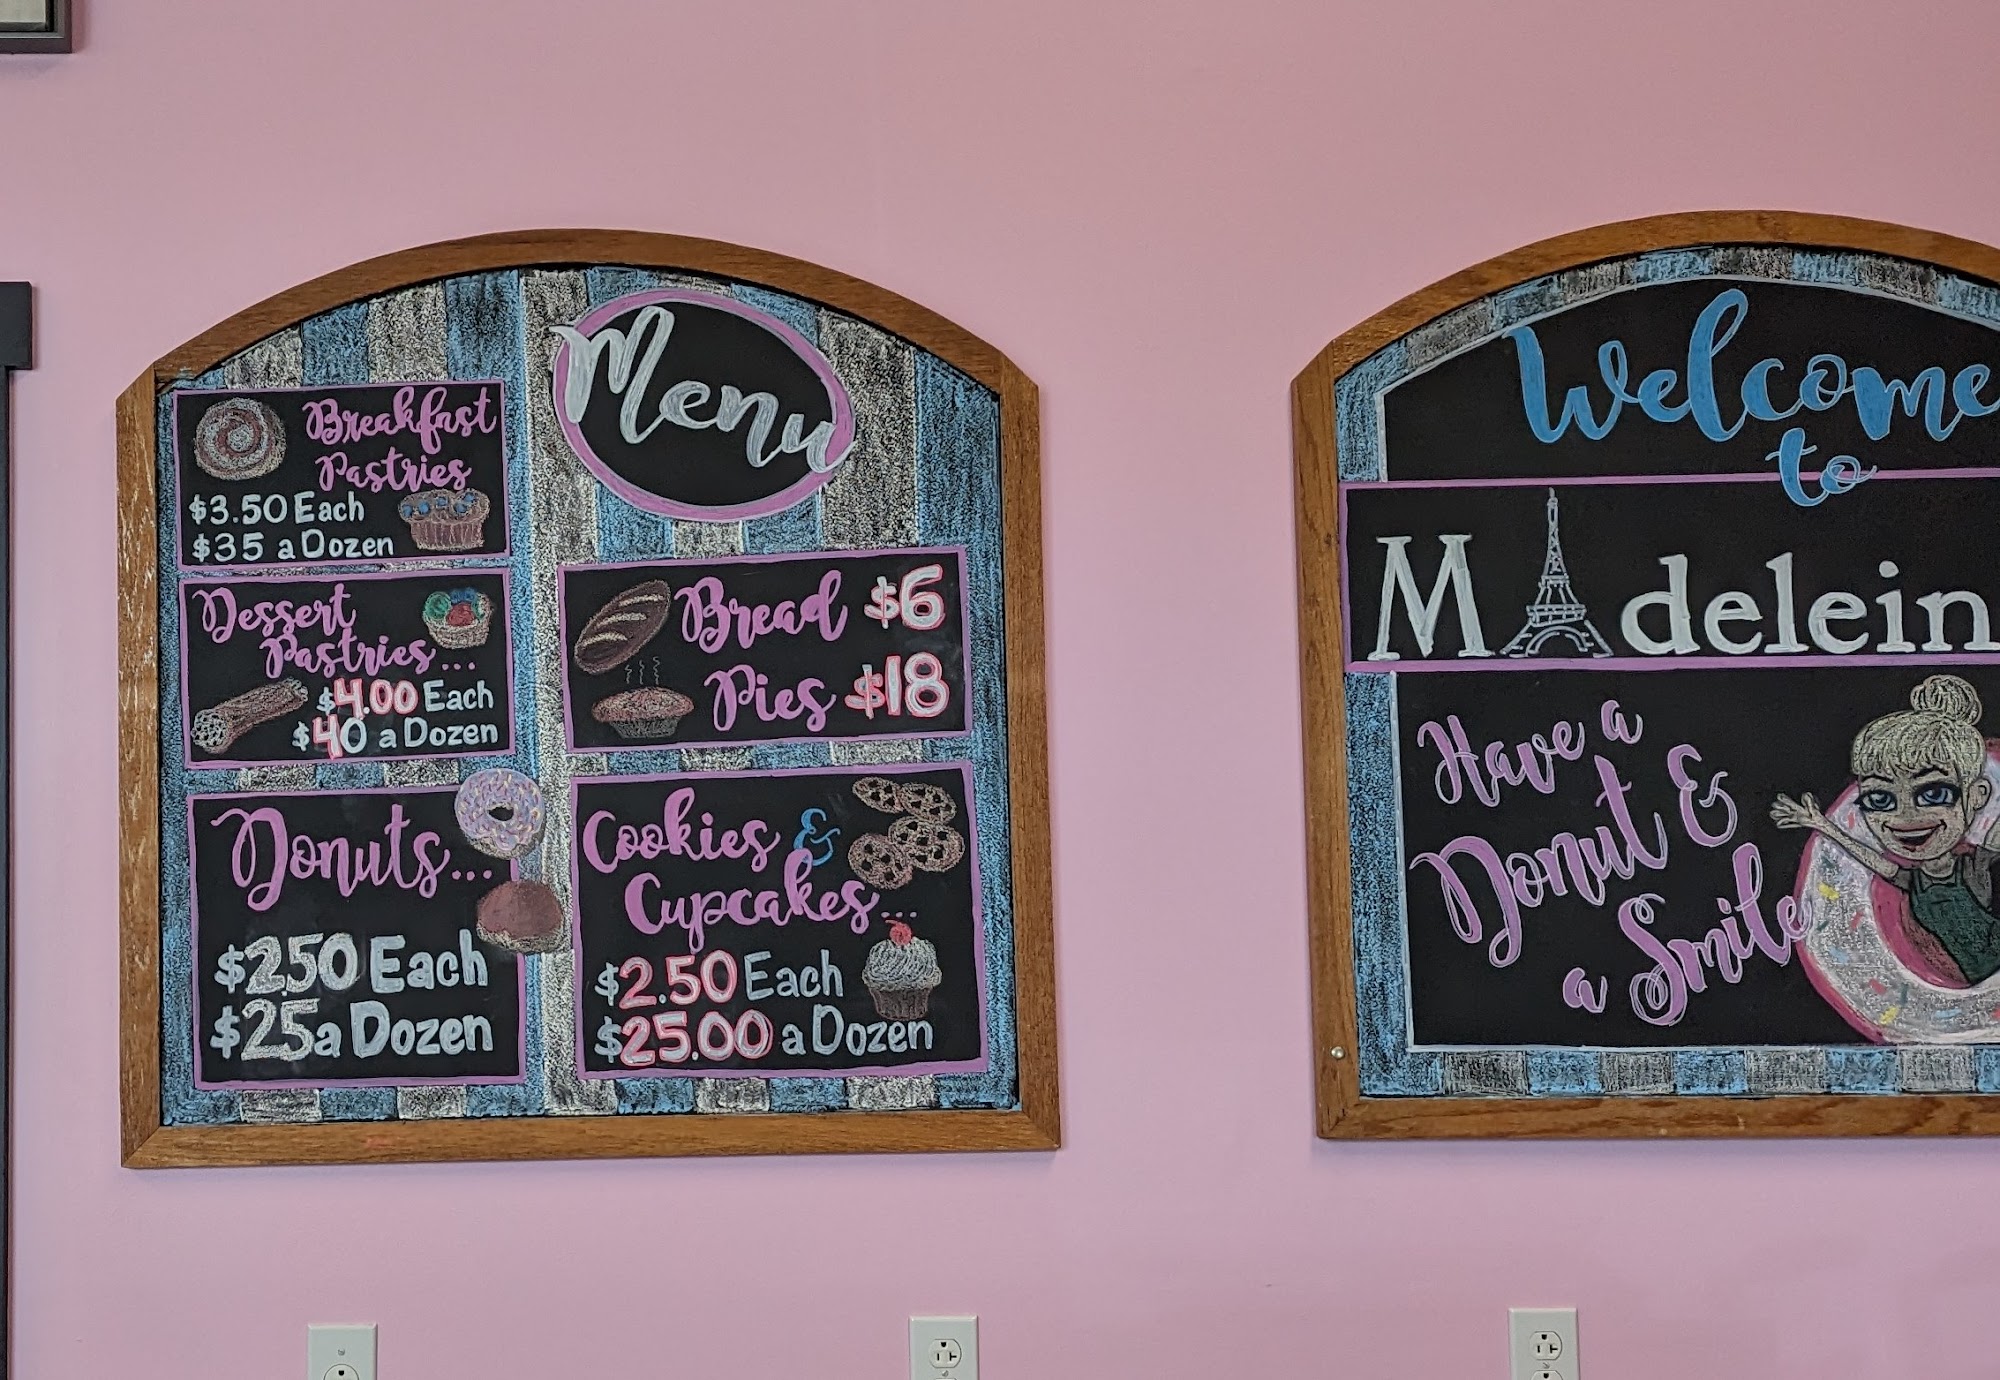 Menu
Breakfast
Pastries
$3.50 Each
$35 a Dozen
Dessert
Pastries...
$4.00 Each
$40 a Dozen
Donuts...
$2.50 Each
$25 a Dozen
Bread $6
Pies $18
Cookies &
Cupcakes...
$2.50 Each
$25.00 a Dozen
Welcome
to
Madelein
Have a
Donut &
a Smile